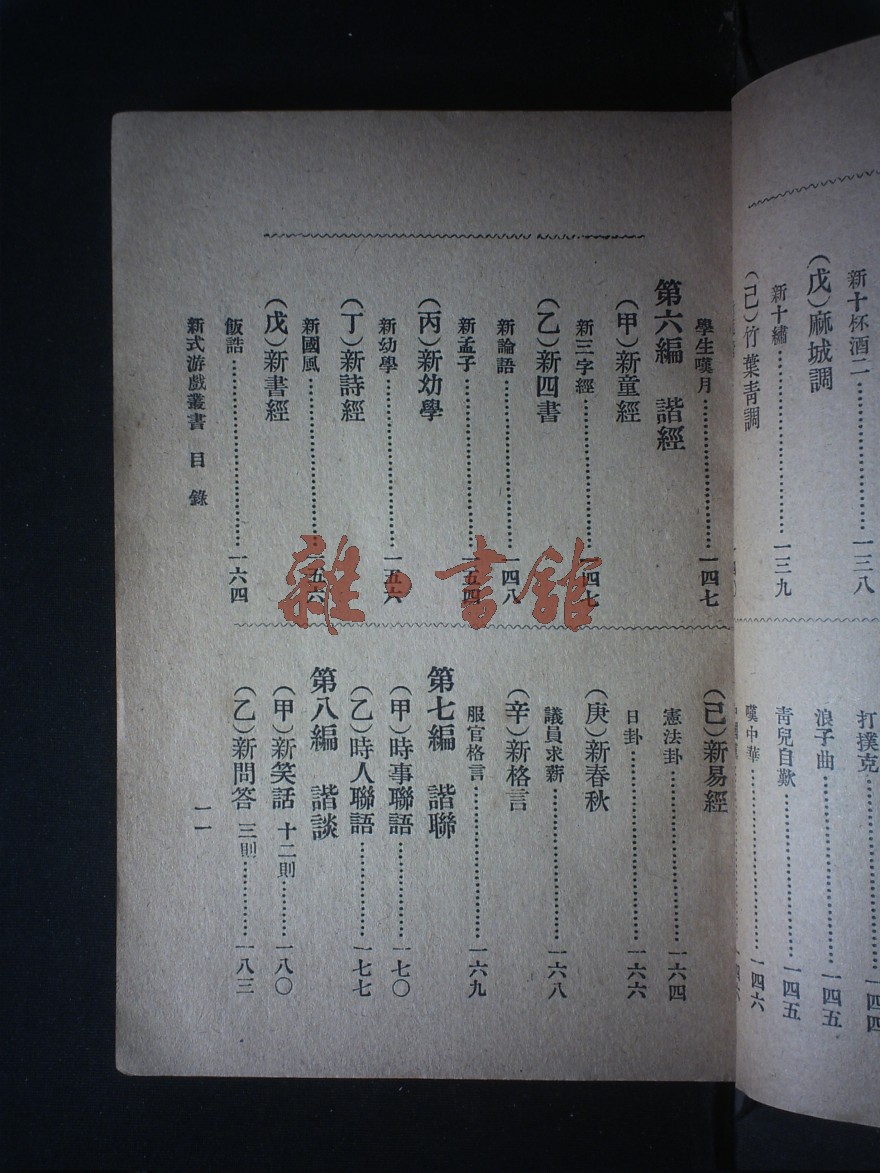 新十杯酒二 一三八
(戊)麻城調
新十繡 一三九
(己)竹葉靑調
打撲克 一四四
浪子曲 一四五
靑兒自歎 一四五
嘆中華 一四六
學生嘆月 一四七
第六編 諧經
(甲)新童經
新三字經 一四七
(乙)新四書
新論語 一四八
新孟子 一五四
(丙)新幼學
新幼學 一五六
(丁)新詩經
新國風 一五六
(戊)新書經
飯誥 一六四
(己)新易經
憲法卦 一六四
日卦 一六六
(庚)新春秋
議員求薪 一六八
(辛)新格言
服官格言 一六九
第七編 諧聯
(甲)時事聯語 一七〇
(乙)時人聯語 一七七
第八編 諧談
(甲)新笑話 十二則 一八〇
(乙)新問答 三則 一八三
新式游戲叢書 目錄
一一
雜·書館